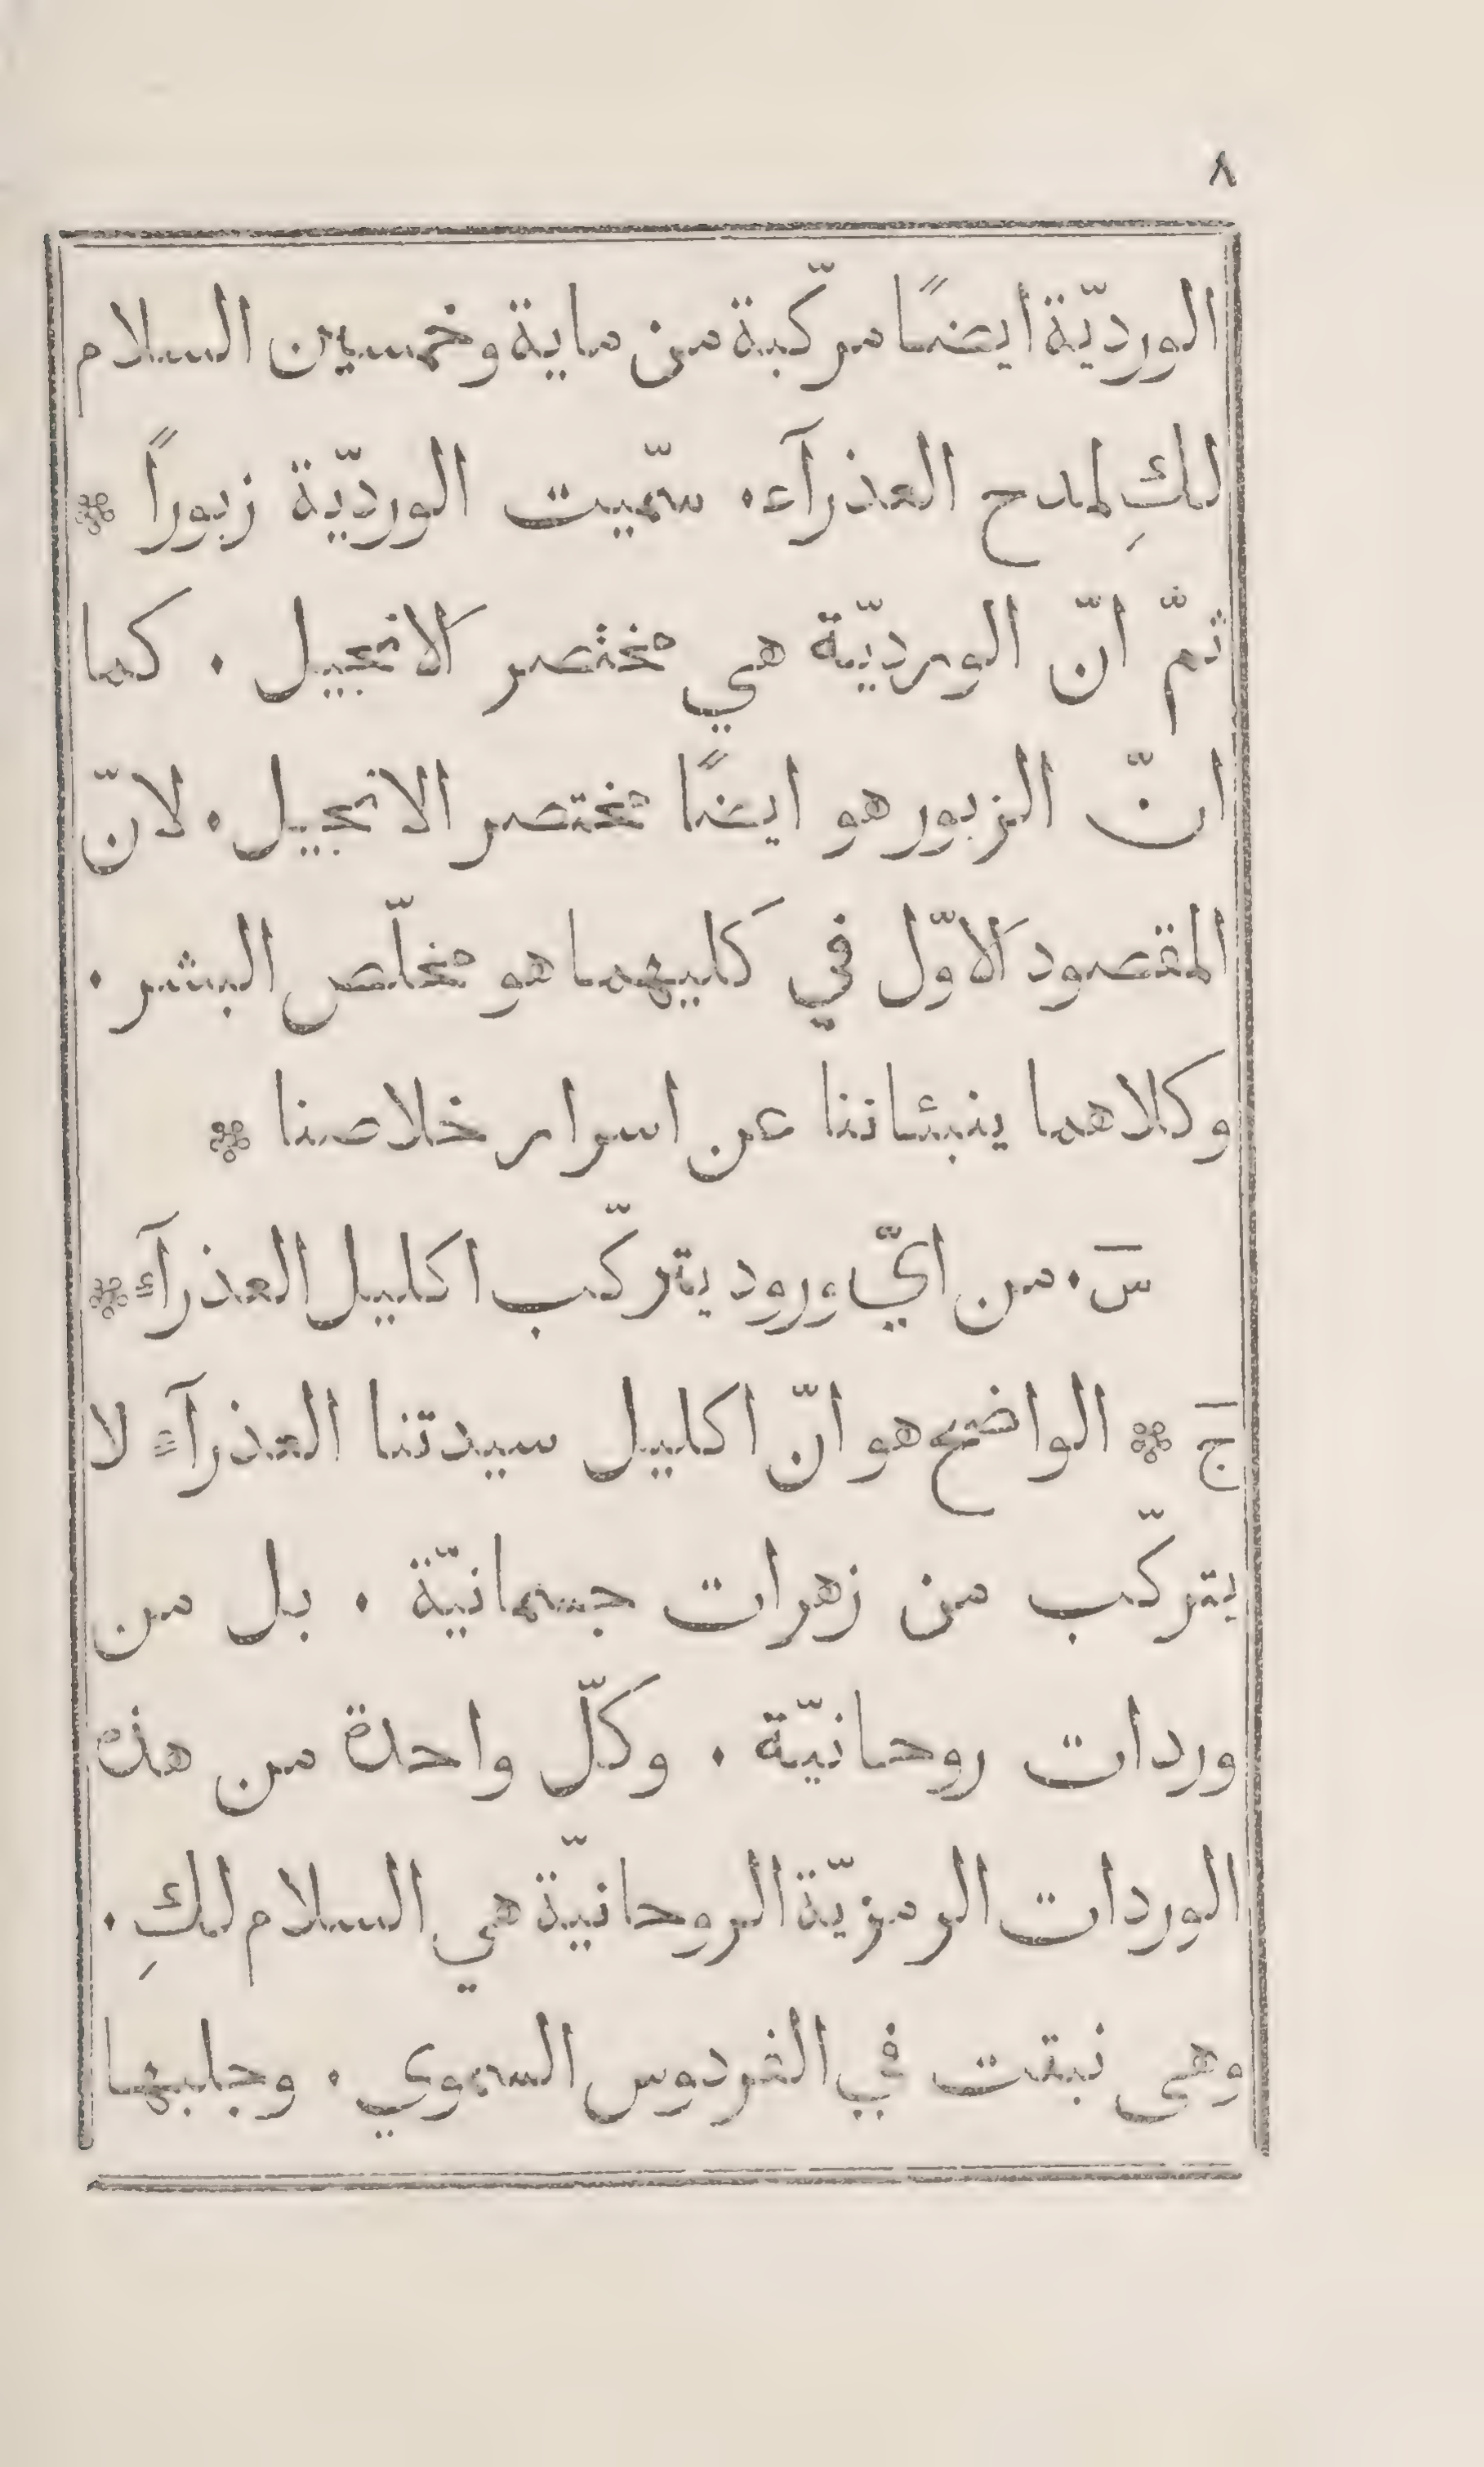 ٨
الورديّة ايضًا مركّبة من ماية وخمسين السلام
لكِ لمدح العذرآء. سمّيت الورديّة زبوراً ܀
ثمّ انّ الورديّة هي مختصر الانجيل . كما
انّ الزبور هو ايضًا مختصر الانجيل. لانّ
المقصود الاوّل في كليهما هو مخلّص البشر .
وكلاهما ينبئاننا عن اسرار خلاصنا ܀
سَ. من ايّ ورود يتركّب اكليل العذرآءِ ܀
جَ ܀ الواضح هو انّ اكليل سيدتنا العذرآءِ لا
يتركّب من زهرات جسمانيّة . بل من
وردات روحانيّة . وكلّ واحدة من هذه
الوردات الرمزيّة الروحانيّة هي السلام لكِ .
وهى نبقت في الفردوس السموي . وجلبها